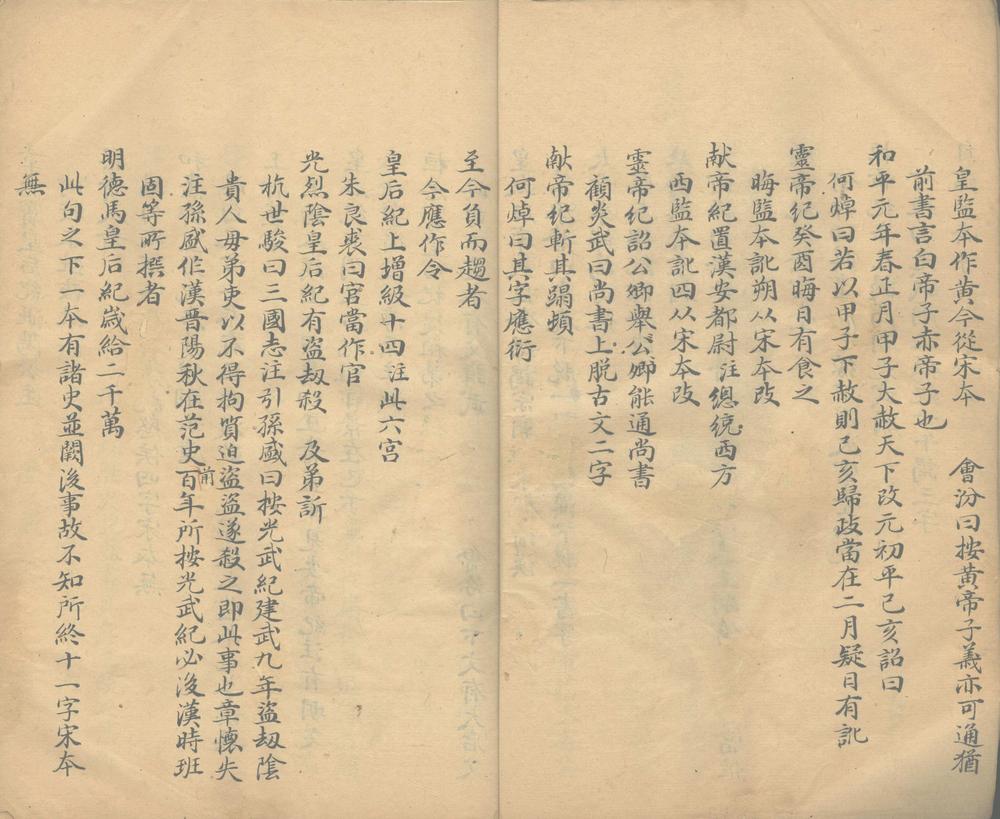 皇監本作黄今從宋本　會汾曰按黄帝子義亦可通猶
前書言白帝子赤帝子也
和平元年春正月甲子大赦天下改元初平己亥詔曰
何焯曰若以甲子下赦則己亥歸政當在二月疑日有訛
靈帝紀癸酉晦日有食之
晦監本訛朔从宋本改
献帝紀置漢安都尉注總统西方
西監本訛四从宋本改
靈帝紀詔公卿舉公卿能通尚書
顧炎武曰尚書上脱古文二字
献帝紀斬其蹋頓
何焯曰其字應衍
至今負而趨者
今應作令
皇后紀上增級十四注此六宫
朱良裘曰官當作官
光烈陰皇后紀有盗劫殺　及弟訢
杭世駿曰三國志注引孫盛曰按光武紀建武九年盗劫陰
貴人母弟吏以不得拘質迫盗盗遂殺之即此事也章懷失
注孫盛作漢晋陽秋在范史前百年所按光武紀必後漢時班
固等所撰者
明德馬皇后紀歲給二千萬
此句之下一本有諸史並闕後事故不知所終十一字宋本
無